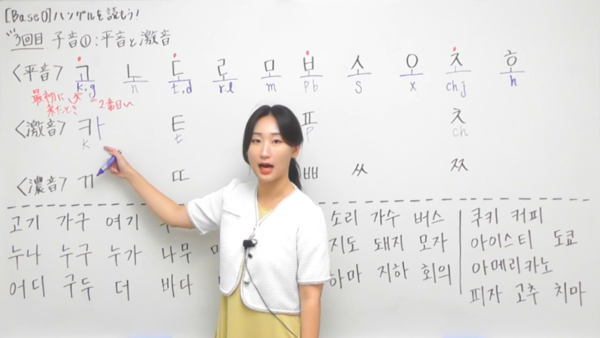 [Base0]ハングルを読もう!
3回目 子音①:平音と激音
<平音> 고 노 도 로 모 보 소 오 초 호
k.g n t,d r.l m p b s x ch.j h
最初に
来たとき 2番目い
<激音> 카 트 프 츠
k t p ch
<濃音> ㄲ ㄸ ㅃ ㅆ ㅉ
고기 가구 여기 소리 가수 버스 쿠키 커피
누나 누구 누가 나무 지도 돼지 모자 아이스티 도쿄
어디 구두 더 바다 하마 지하 회의 아메리카노
피자 고추 치마